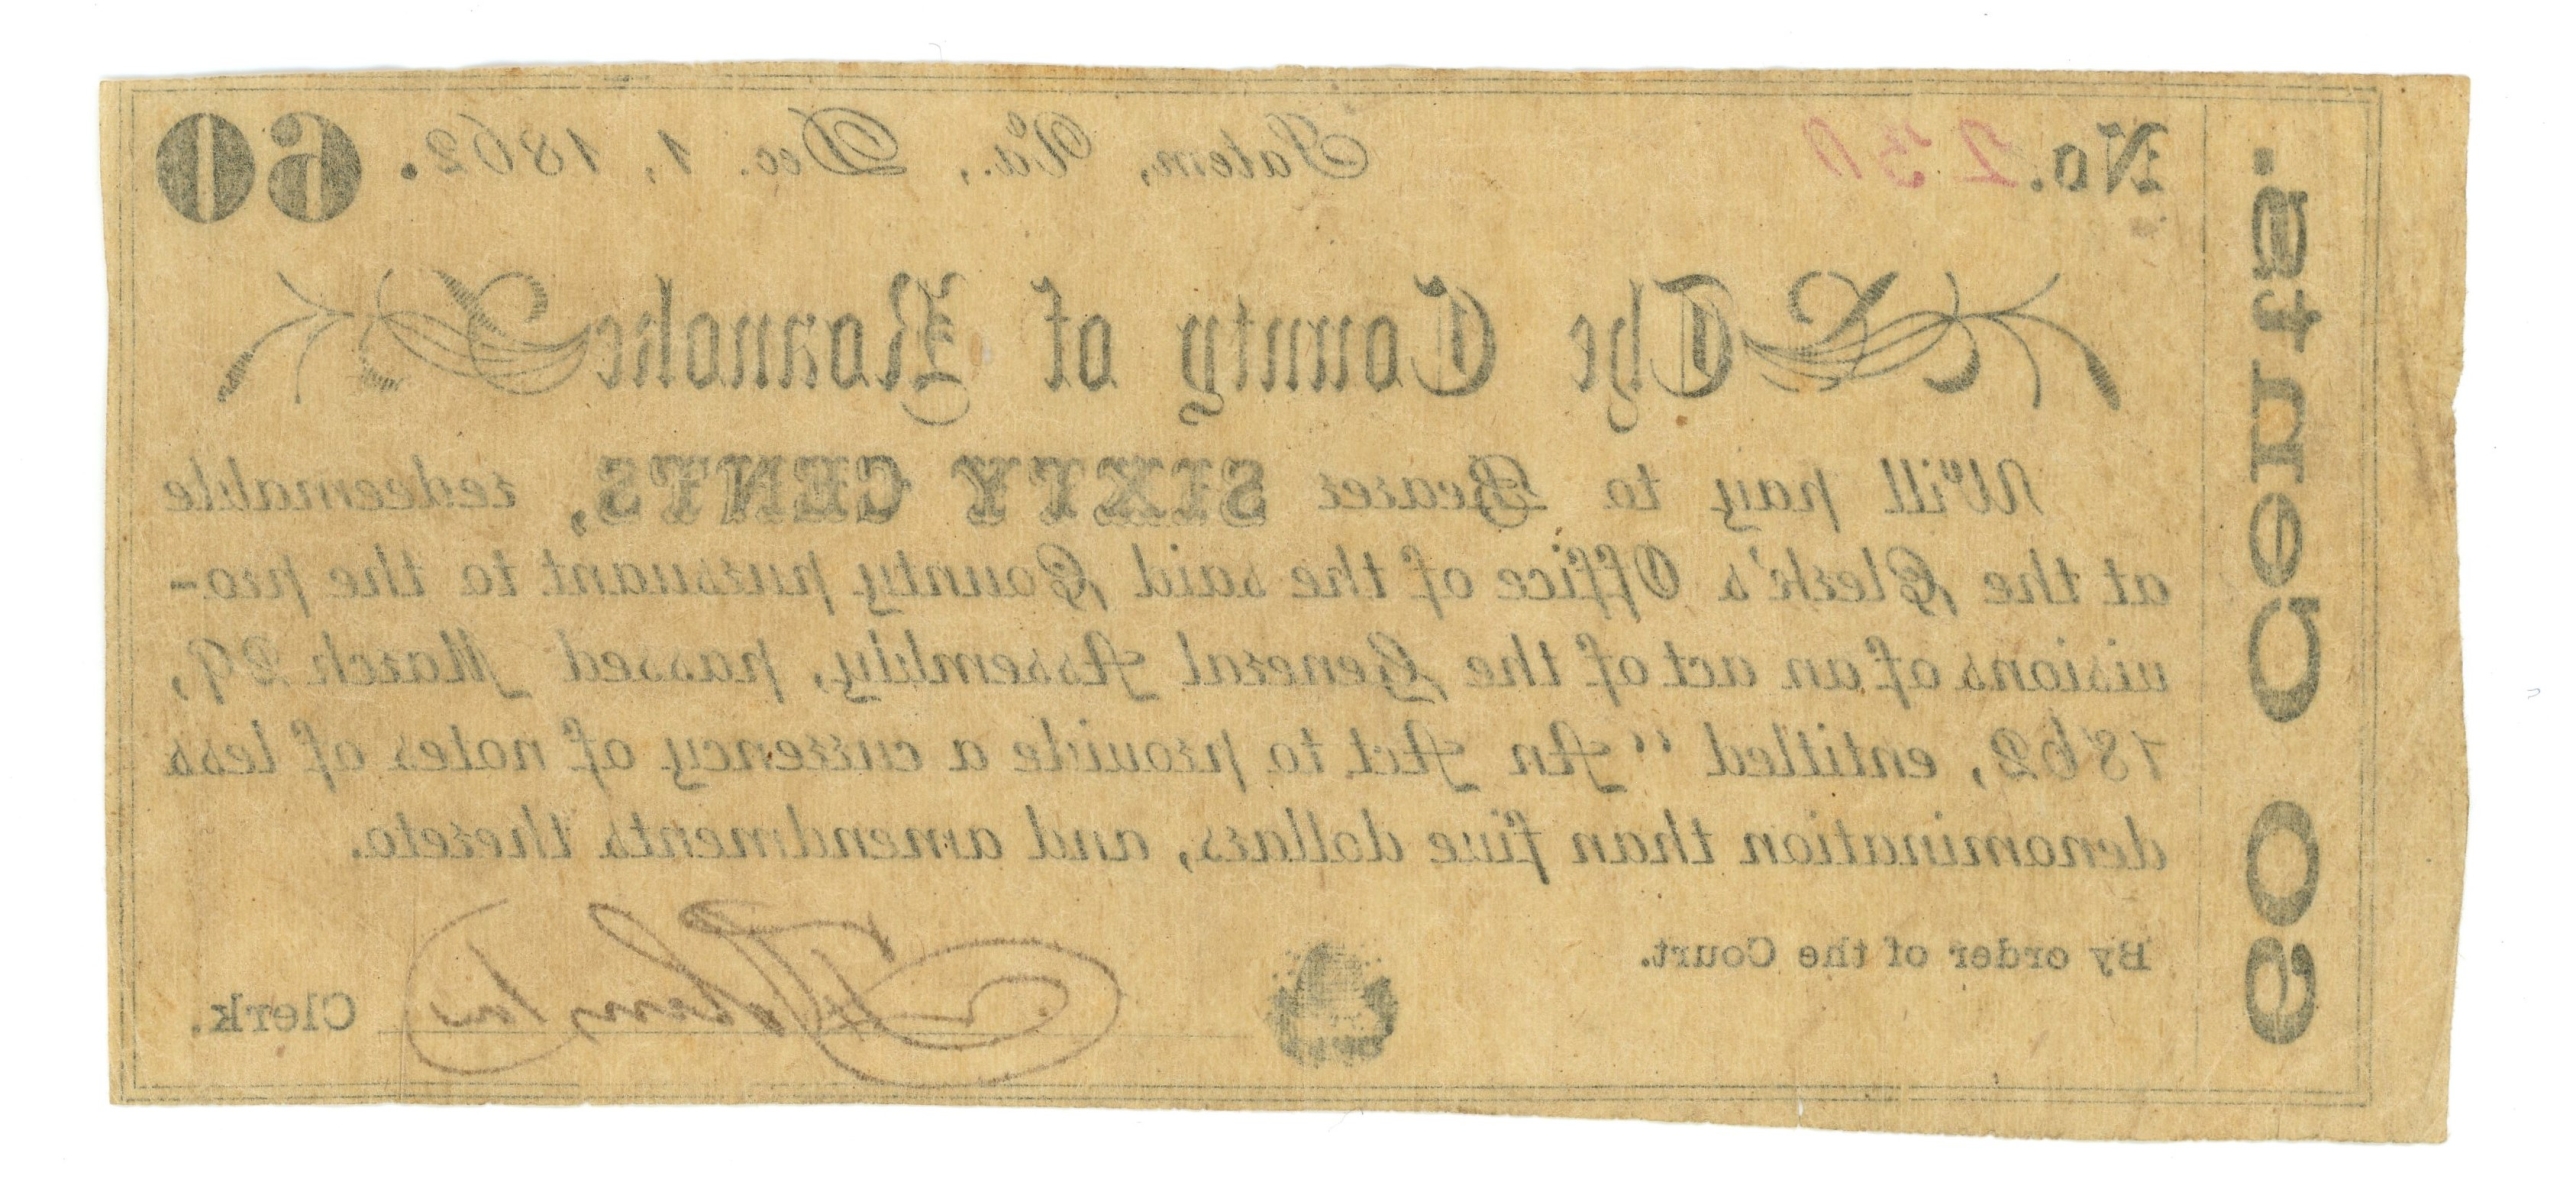 No. 230 Salem, Va., Dec. 1, 1862. 60
The County of Roanoke
Will pay to Bearer SIXTY CENTS, redeemable
at the Clerk's Office of the said County pursuant to the pro-
visions of an act of the General Assembly, passed March 29,
1862, entitled "An Act to provide a currency of notes of less
denomination than five dollars, and amendments thereto.
By order of the Court.
Clerk.
60 Cents.